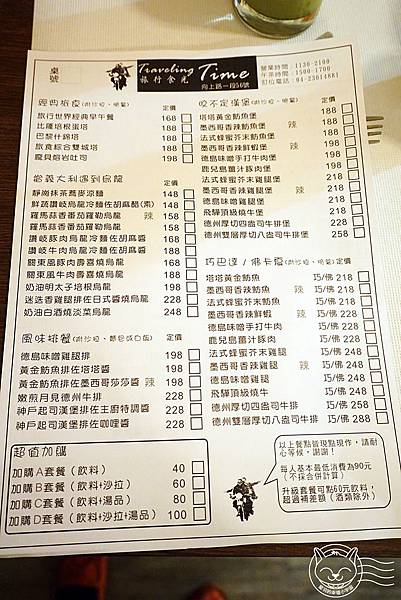 桌號
Traveling Time
旅行食光
向上路一段56號
營業時間：1130-2100
午茶時間：1500-1700
訂位電話：04-23014881
經典旅食(附沙拉、燒薯) 定價
旅行世界經典早午餐 168
比薩培根蛋塔 188
巴黎什錦塔 188
旅食綜合雙城塔 188
龐貝熔岩吐司 198
當義大利遇到烏龍 定價
靜崗抹茶蕎麥涼麵 148
鮮蔬讚岐烏龍冷麵佐胡麻醋(素) 148
羅馬蒜香番茄羅勒烏龍 辣 158
羅馬蒜香番茄羅勒烏龍 158
讚岐豚肉烏龍冷麵佐胡麻醬 168
讚岐牛肉烏龍冷麵佐胡麻醬 188
關東風豚肉壽喜燒烏龍 188
關東風牛肉壽喜燒烏龍 198
奶油明太子培根烏龍 198
迷迭香雞腿排佐日式醬燒烏龍 228
奶油白酒燒淡菜烏龍 248
風味排餐(附沙拉、麵包或白飯) 定價
德島味噌雞腿排 198
黃金魴魚排佐塔塔醬 198
黃金魴魚排佐墨西哥莎莎醬 辣 198
嫩煎月見德州牛排 228
神戶起司漢堡排佐主廚特調醬 228
神戶起司漢堡排佐咖哩醬 228
超值加購
加購A套餐(飲料) 40
加購B套餐(飲料+沙拉) 60
加購C套餐(飲料+湯品) 80
加購D套餐(飲料+沙拉+湯品) 100
咬不定漢堡(附沙拉、燒薯) 定價
塔塔黃金魴魚堡 188
墨西哥香辣魴魚堡 辣 188
法式蜂蜜芥末魴魚堡 188
墨西哥香辣鮮蝦堡 辣 198
德島味噌手打牛肉堡 198
鹿兒島薑汁豚肉堡 198
法式蜂蜜芥末雞腿堡 218
墨西哥香辣雞腿堡 辣 218
德島味噌雞腿堡 218
飛驒頂級燒牛堡 218
德州厚切四盎司牛排堡 228
德州雙層厚切八盎司牛排堡 258
巧巴達／佛卡夏(附沙拉、燒薯) 定價
塔塔黃金魴魚 巧/佛 218
墨西哥香辣魴魚 辣 巧/佛 218
法式蜂蜜芥末魴魚 巧/佛 218
墨西哥香辣鮮蝦 辣 巧/佛 228
德島味噌手打牛肉 巧/佛 228
鹿兒島薑汁豚肉 巧/佛 228
法式蜂蜜芥末雞腿 巧/佛 248
墨西哥香辣雞腿 辣 巧/佛 248
德島味噌雞腿 巧/佛 248
飛驒頂級燒牛 巧/佛 248
德州厚切四盎司牛排 巧/佛 258
德州雙層厚切八盎司牛排 巧/佛 288
以上餐點皆現點現作，請耐心等候，謝謝！
每人基本最低消費為90元
(不採合併計算)
升級套餐可點60元飲料，
超過補差額(酒類除外)